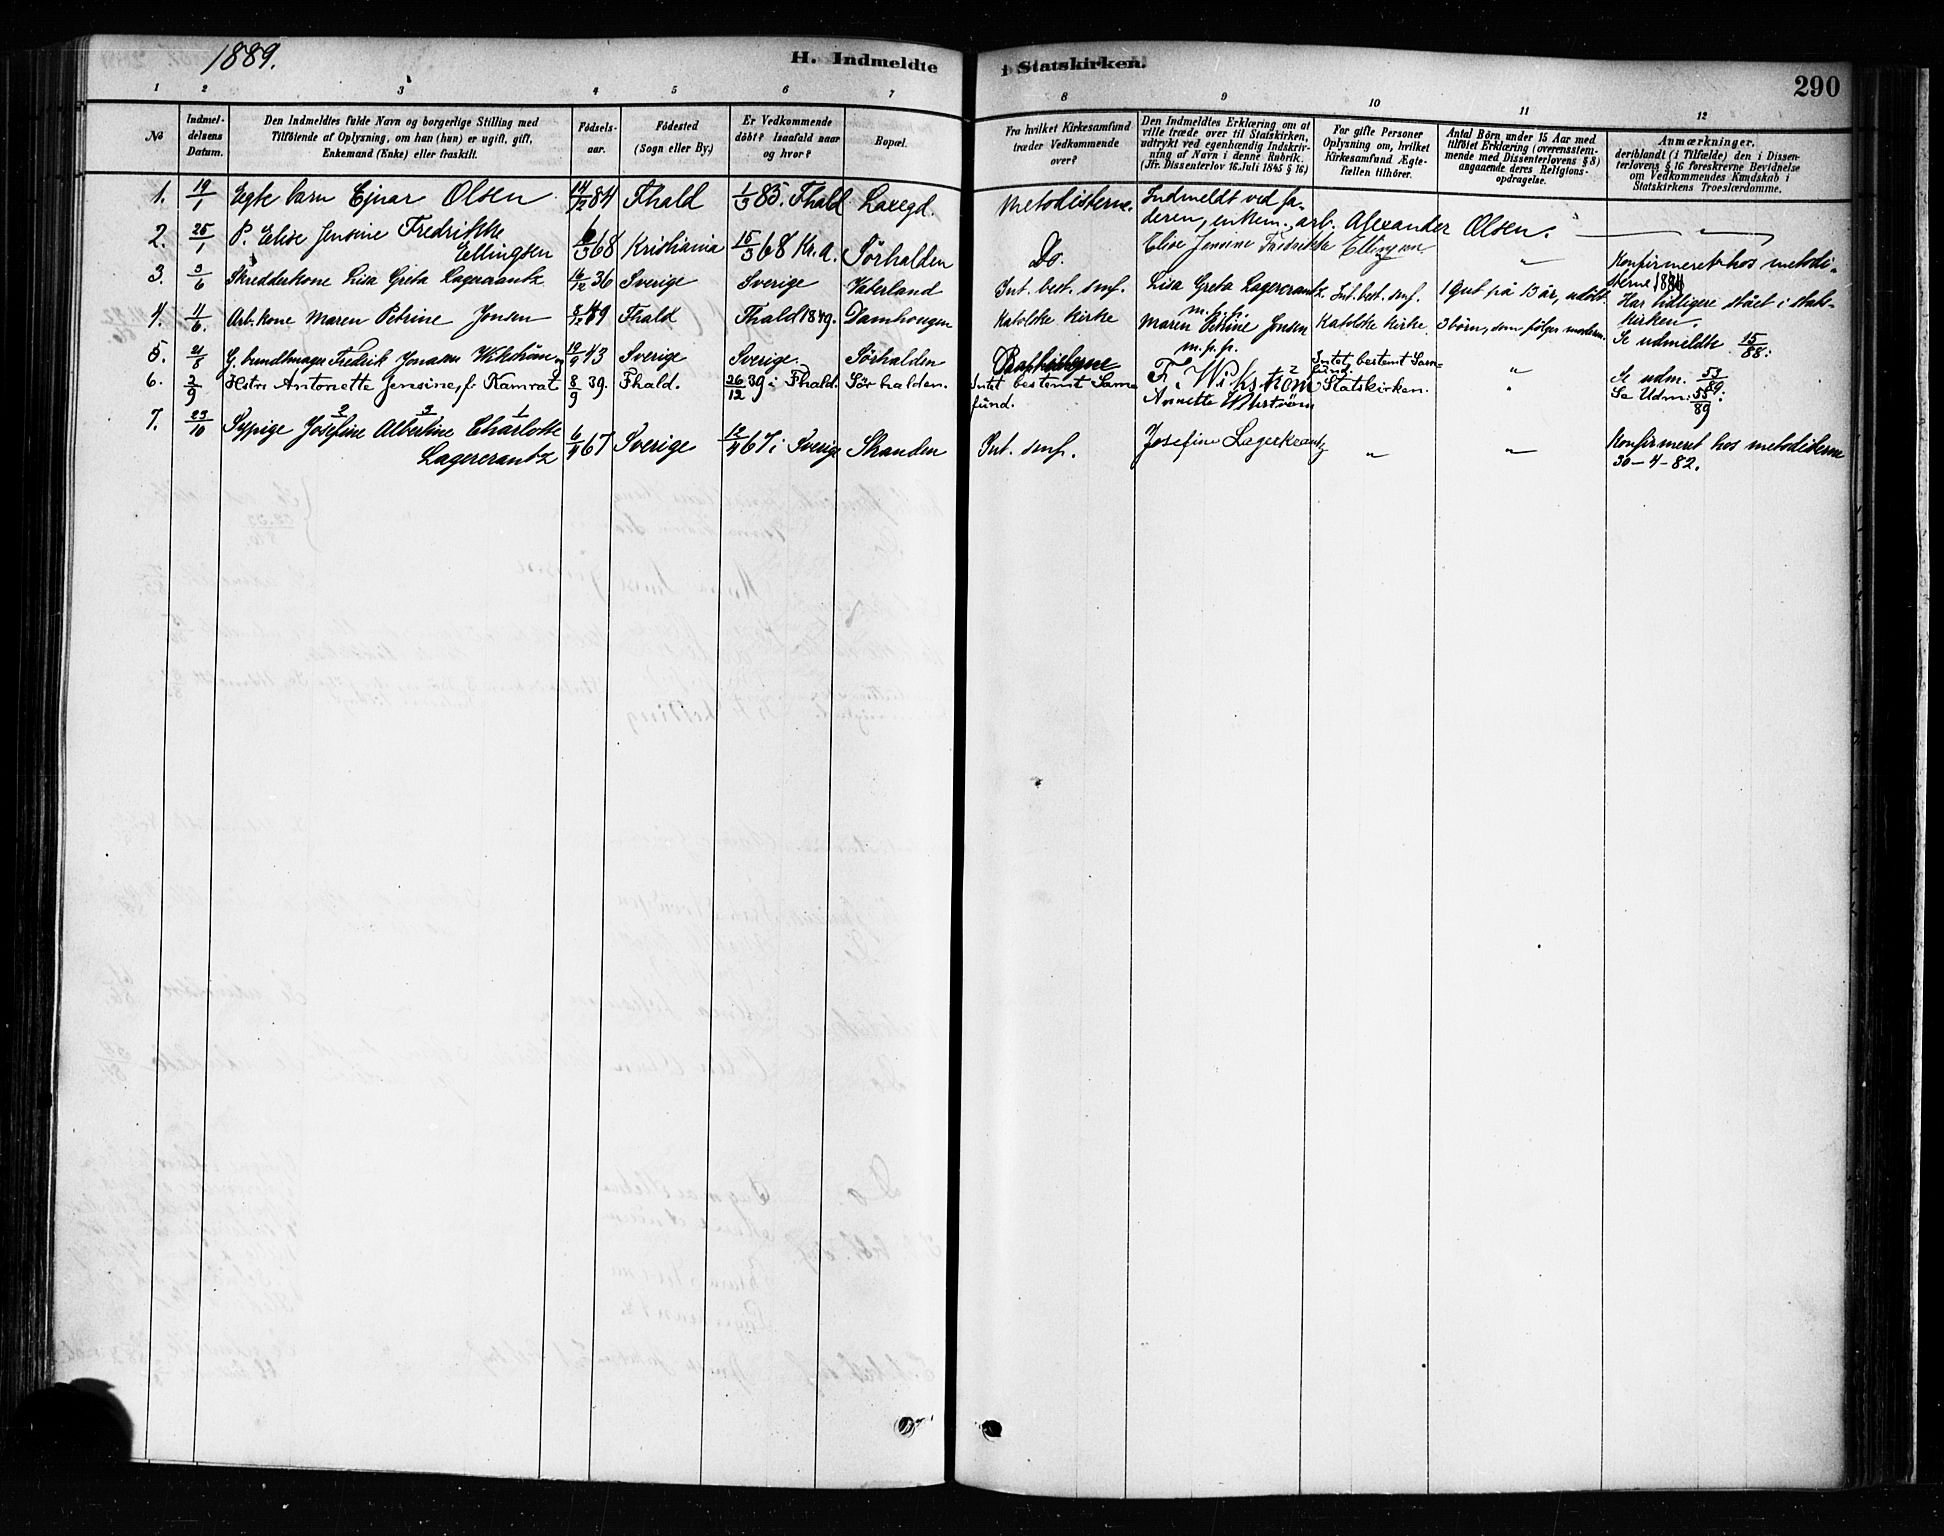 1889.
H. Indmeldte i Statskirken.
290
1 2 3 4 5 6 7 8 9 10 11 12
No
Indmeldelsens Datum.
Den Indmeldtes fulde Navn og borgerlige Stilling med
Tilføiende af Oplysning, om han (hun) er ugift, gift,
Enkemand (Enke) eller fraskilt.
Fødselsaar.
Fødested
(Sogn eller By.)
Er Vedkommende
döbt? Isaafald naar
og hvor?
Bopæl.
Fra hvilket Kirkesamfund
træder Vedkommende
over?
Den Indmeldtes Erklæring om at
ville træde over til Statskirken,
udtrykt ved egenhændig Indskriv-
ning af Navn i denne Rubrik.
(Jfr. Dissenterlov 16. Juli 1845 § 16)
For gifte Personer
Oplysning om, hvilket
Kirkesamfund Ægte-
fællen tilhörer.
Antal Börn under 15 Aar med
tilføiet Erklæring (overensstem-
mende med Dissenterlovens § 8)
angaaende deres Religions-
opdragelse.
Anmærkninger,
deriblandt (i Tilfælde) den i Dissen-
terlovens § 16 foreskrevne Bevidnelse
om Vedkommendes Kundskab i
Statskirkens Troeslærdomme.
1. 19/1 Egte barn Ejnar Olsen 14/12 84 Fhald 1/3 85. Fhald Laxegd. Metodisterne. Indmeldt ved fa-
deren, enkem. arb. Alexander Olsen.
2. 25/1 P. Elise Jensine Fredrikke
Ellingsen 68 Kristiania 15/3 68 Kr.a. Sörhalden Do. Elise Jensine Fredrikke Ellingsen " Konfirmeret hos metodi-
sterne
3. 3/6 Skredderkone Lisa Greta Lagercrantz 16/12 36 Sverige Sverige Vaterland Int. best. smf. Lisa Greta Lagercrantz Int. best. smf. 1 Gut på 13 år, udöbt
m. p. p.
4. 11/6. Arb. kone Maren Petrine Jensen 5/12 49 Fhald Fhald 1849. Damhougen Katolske Kirke Maren Petrine Jensen Katolske Kirke. 3 börn, som följer moderen. Har tidligere stået i stats-
kirken.
m. p. p. Se udmeldte 15/88.
5. 21/8 Fredrik Jonasen Vikström 19/9 43 Sverige Sverige. Sörhalden Baptisterne F. Wikström Intet bestemt Sam-
fund. " Se udm. 53/89.
6. 2/9 Hstr. Antonette Jensine, f. Kamrat 8/9 39. Fhald. 26/12 39 i Fhald. Sörhalden. Intet bestemt Sam-
fund. Annette Wikström Statskirken. " Se Udm: 55/89
7. 23/10 Sypige Josefine Albertine Charlotte
Lagercrantz 6/4 67 Sverige 12/4 67 i Sverige Stranden Int. smf. Josefine Lagerkrantz " " Konfirmeret hos metodisterne
30-4-82.